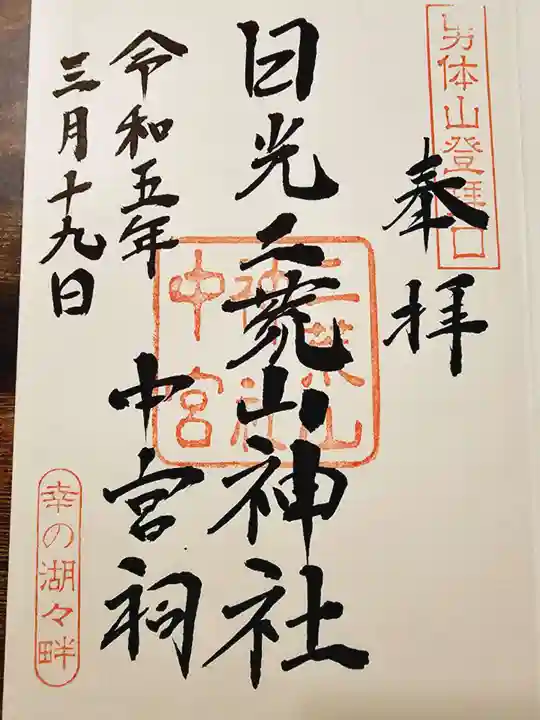 男体山登拝口
奉拝
日光二荒山神社
中宮祠
令和五年
三月十九日
二荒山
神社
中宮
幸の湖々畔